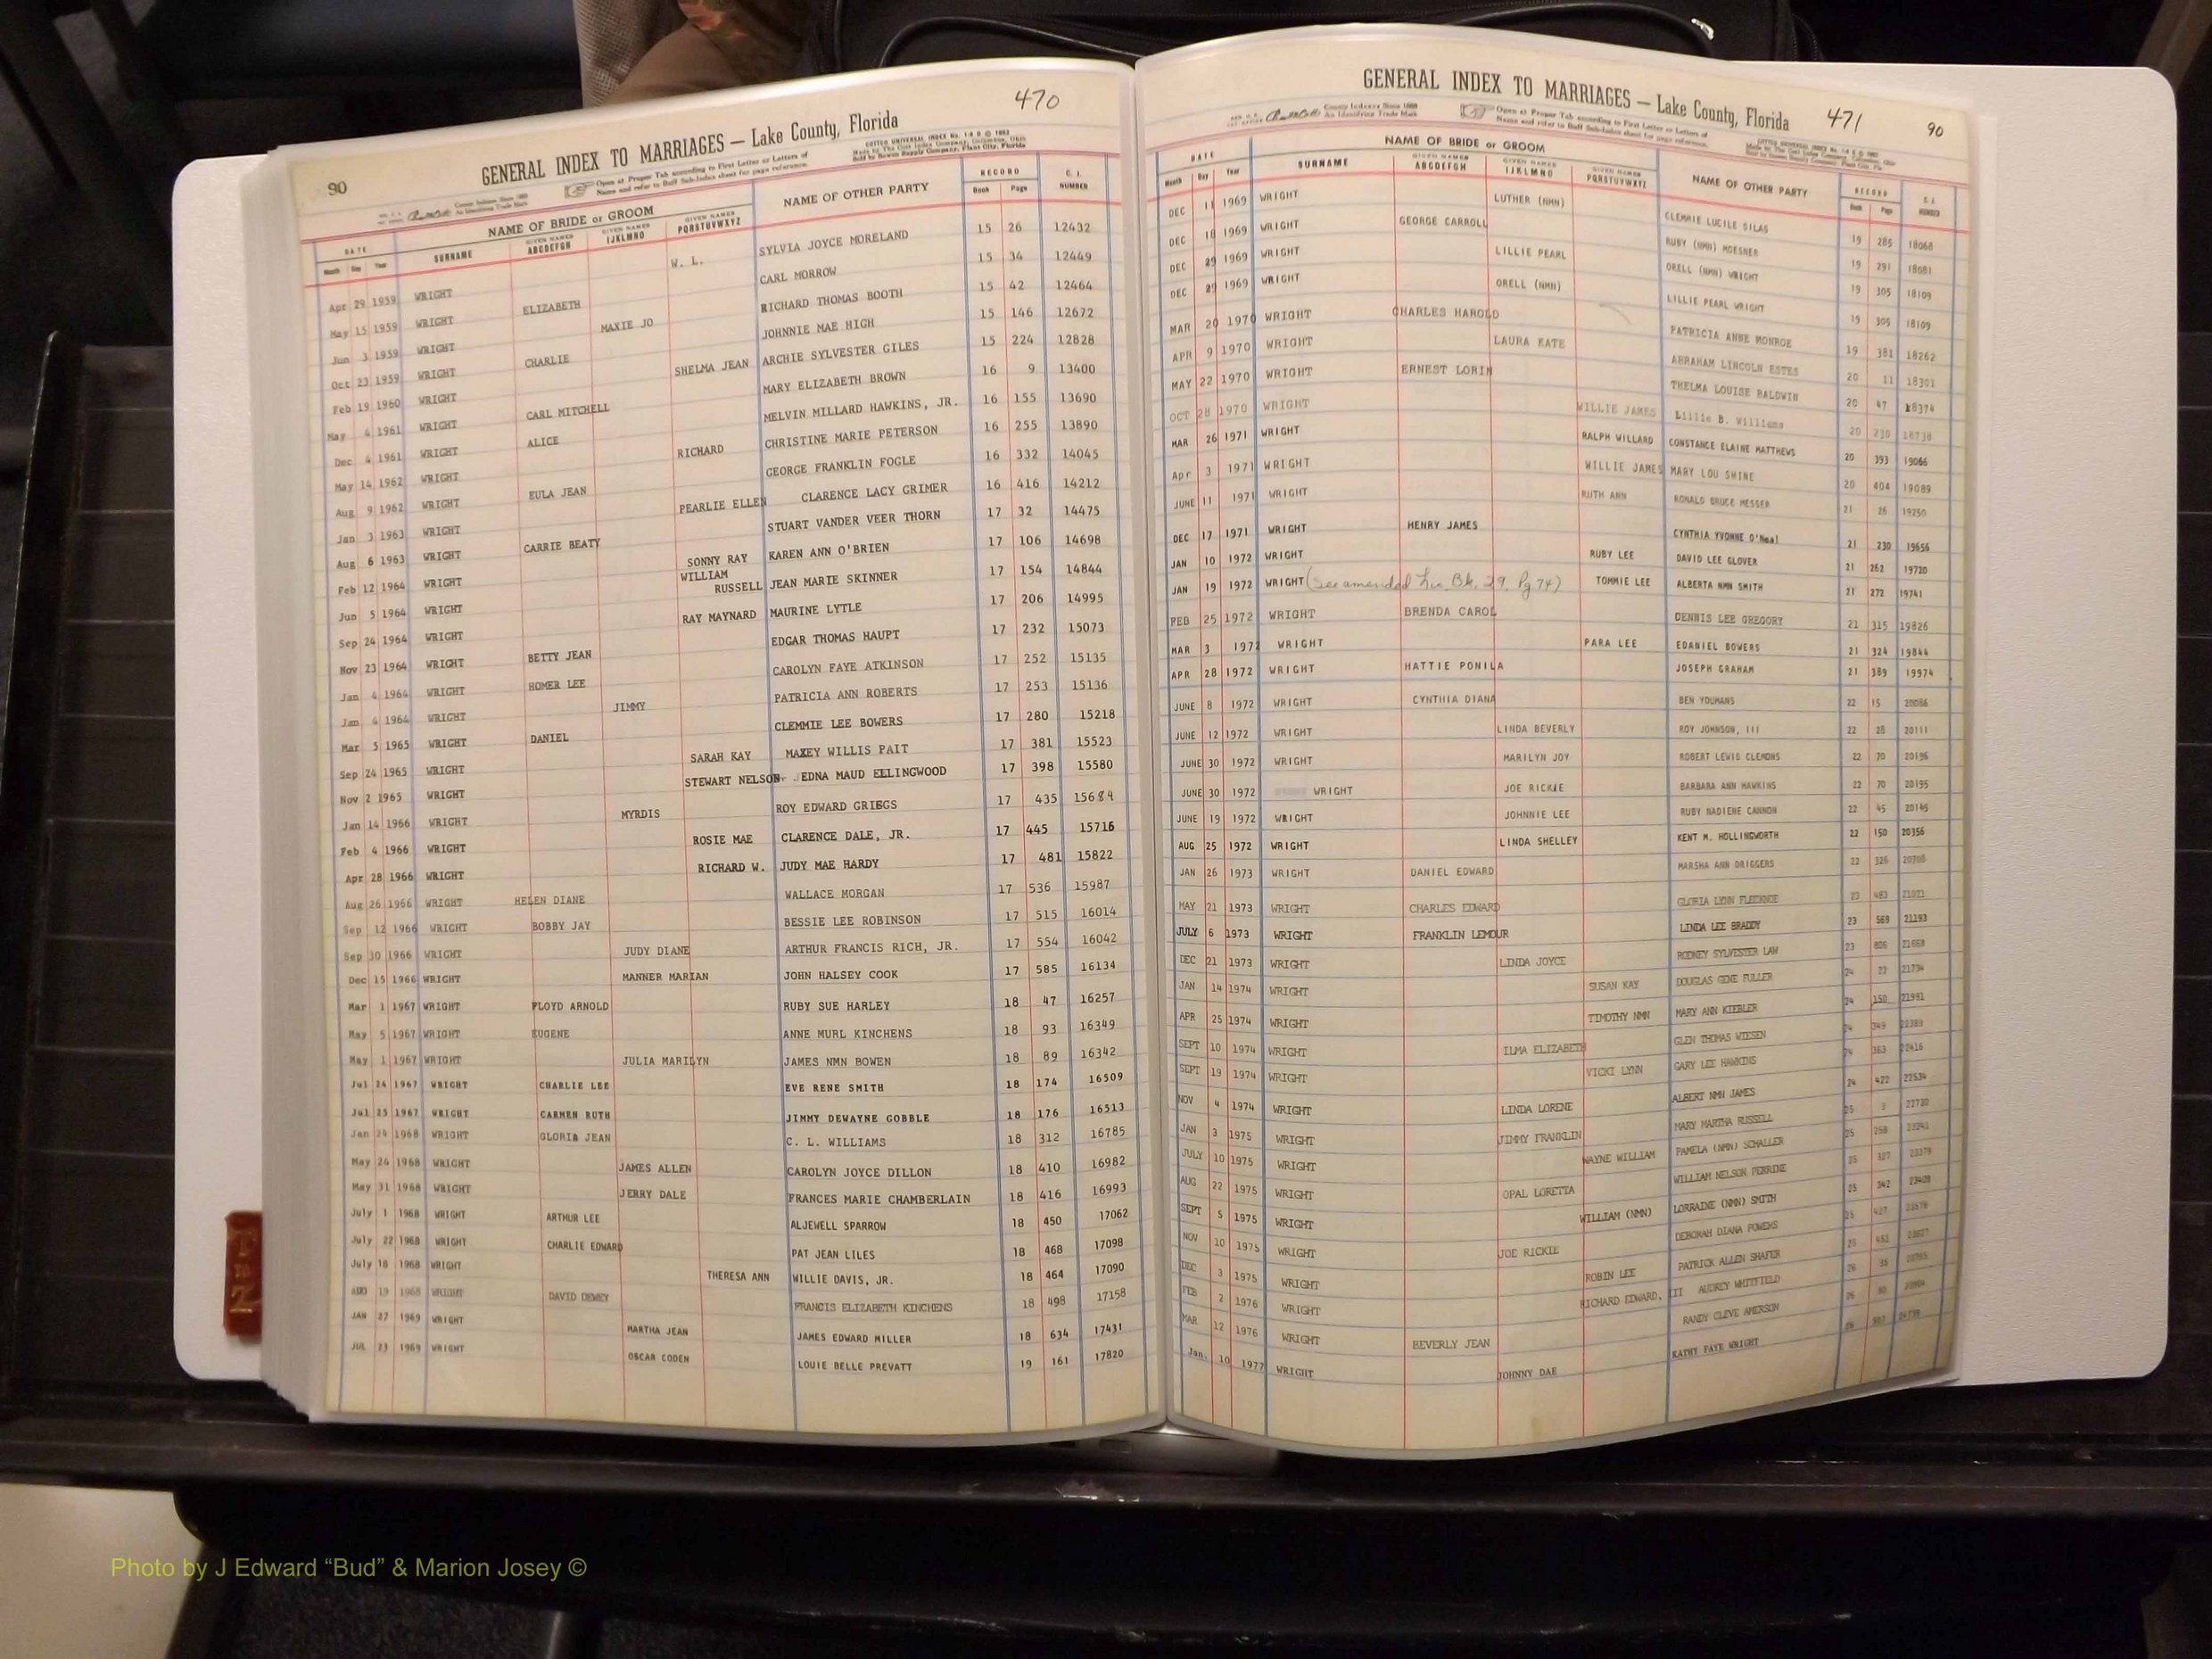 470
GENERAL INDEX TO MARRIAGES — Lake County, Florida
90
Open at Proper Tab according to First Letter or Letters of
Name and refer to Buff Sub-Index sheet for page reference.
DATE NAME OF BRIDE or GROOM NAME OF OTHER PARTY RECORD C. I. NUMBER
Month Day Year SURNAME GIVEN NAMES ABCDEFGH GIVEN NAMES IJKLMNO GIVEN NAMES PQRSTUVWXYZ Book Page
Apr 29 1959 WRIGHT W. L. SYLVIA JOYCE MORELAND 15 26 12432
May 15 1959 WRIGHT ELIZABETH CARL MORROW 15 34 12449
Jun 3 1959 WRIGHT MAXIE JO RICHARD THOMAS BOOTH 15 42 12464
Oct 23 1959 WRIGHT CHARLIE JOHNNIE MAE HIGH 15 146 12672
Feb 19 1960 WRIGHT SHELMA JEAN ARCHIE SYLVESTER GILES 15 224 12828
May 4 1961 WRIGHT CARL MITCHELL MARY ELIZABETH BROWN 16 9 13400
Dec 4 1961 WRIGHT ALICE MELVIN MILLARD HAWKINS, JR. 16 155 13690
May 14 1962 WRIGHT RICHARD CHRISTINE MARIE PETERSON 16 255 13890
Aug 9 1962 WRIGHT EULA JEAN GEORGE FRANKLIN FOGLE 16 332 14045
Jan 3 1963 WRIGHT PEARLIE ELLEN CLARENCE LACY GRIMER 16 416 14212
Aug 6 1963 WRIGHT CARRIE BEATY STUART VANDER VEER THORN 17 32 14475
Feb 12 1964 WRIGHT SONNY RAY KAREN ANN O'BRIEN 17 106 14698
Jun 5 1964 WRIGHT WILLIAM RUSSELL JEAN MARIE SKINNER 17 154 14844
Sep 24 1964 WRIGHT RAY MAYNARD MAURINE LYTLE 17 206 14995
Nov 23 1964 WRIGHT BETTY JEAN EDGAR THOMAS HAUPT 17 232 15073
Jan 4 1964 WRIGHT HOMER LEE CAROLYN FAYE ATKINSON 17 252 15135
Jan 4 1964 WRIGHT JIMMY PATRICIA ANN ROBERTS 17 253 15136
Mar 5 1965 WRIGHT DANIEL CLEMMIE LEE BOWERS 17 280 15218
Sep 24 1965 WRIGHT SARAH KAY MAXEY WILLIS PAIT 17 381 15523
Nov 2 1965 WRIGHT STEWART NELSON EDNA MAUD ELLINGWOOD 17 398 15580
Jan 14 1966 WRIGHT MYRDIS ROY EDWARD GRIEGS 17 435 15684
Feb 4 1966 WRIGHT ROSIE MAE CLARENCE DALE, JR. 17 445 15716
Apr 28 1966 WRIGHT RICHARD W. JUDY MAE HARDY 17 481 15822
Aug 26 1966 WRIGHT HELEN DIANE WALLACE MORGAN 17 536 15987
Sep 12 1966 WRIGHT BOBBY JAY BESSIE LEE ROBINSON 17 515 16014
Sep 30 1966 WRIGHT JUDY DIANE ARTHUR FRANCIS RICH, JR. 17 554 16042
Dec 15 1966 WRIGHT MANNER MARIAN JOHN HALSEY COOK 17 585 16134
Mar 1 1967 WRIGHT FLOYD ARNOLD RUBY SUE HARLEY 18 47 16257
May 5 1967 WRIGHT EUGENE ANNE MURL KINCHENS 18 93 16349
May 1 1967 WRIGHT JULIA MARILYN JAMES NMN BOWEN 18 89 16342
Jul 24 1967 WRIGHT CHARLIE LEE EVE RENE SMITH 18 174 16509
Jul 25 1967 WRIGHT CARMEN RUTH JIMMY DEWAYNE GOBBLE 18 176 16513
Jan 24 1968 WRIGHT GLORIA JEAN C. L. WILLIAMS 18 312 16785
May 24 1968 WRIGHT JAMES ALLEN CAROLYN JOYCE DILLON 18 410 16982
May 31 1968 WRIGHT JERRY DALE FRANCES MARIE CHAMBERLAIN 18 416 16993
July 1 1968 WRIGHT ARTHUR LEE ALJEWELL SPARROW 18 450 17062
July 22 1968 WRIGHT CHARLIE EDWARD PAT JEAN LILES 18 468 17098
July 18 1968 WRIGHT THERESA ANN WILLIE DAVIS, JR. 18 464 17090
AUG 19 1968 WRIGHT DAVID DEWEY FRANCIS ELIZABETH KINCHENS 18 498 17158
JAN 27 1969 WRIGHT MARTHA JEAN JAMES EDWARD MILLER 18 634 17431
JUL 23 1969 WRIGHT OSCAR CODEN LOUIE BELLE PREVATT 19 161 17820
T to Z
GENERAL INDEX TO MARRIAGES — Lake County, Florida 471 90
Open at Proper Tab according to First Letter or Letters of
Name and refer to Buff Sub-Index sheet for page reference.
DATE NAME OF BRIDE or GROOM NAME OF OTHER PARTY RECORD C. I. NUMBER
Month Day Year SURNAME GIVEN NAMES ABCDEFGH GIVEN NAMES IJKLMNO GIVEN NAMES PQRSTUVWXYZ Book Page
DEC 11 1969 WRIGHT LUTHER (NMN) CLEMMIE LUCILE SILAS 19 285 18068
DEC 18 1969 WRIGHT GEORGE CARROLL RUBY (NMN) MOESNER 19 291 18081
DEC 29 1969 WRIGHT LILLIE PEARL ORELL (NMN) WRIGHT 19 305 18109
DEC 29 1969 WRIGHT ORELL (NMN) LILLIE PEARL WRIGHT 19 305 18109
MAR 20 1970 WRIGHT CHARLES HAROLD PATRICIA ANNE MONROE 19 381 18262
APR 9 1970 WRIGHT LAURA KATE ABRAHAM LINCOLN ESTES 20 11 18301
MAY 22 1970 WRIGHT ERNEST LORIN THELMA LOUISE BALDWIN 20 47 18374
OCT 28 1970 WRIGHT WILLIE JAMES Lillie B. Williams 20 230 18738
MAR 26 1971 WRIGHT RALPH WILLARD CONSTANCE ELAINE MATTHEWS 20 393 19066
Apr 3 1971 WRIGHT WILLIE JAMES MARY LOU SHINE 20 404 19089
JUNE 11 1971 WRIGHT RUTH ANN RONALD BRUCE MESSER 21 26 19250
DEC 17 1971 WRIGHT HENRY JAMES CYNTHIA YVONNE O'Neal 21 230 19656
JAN 10 1972 WRIGHT RUBY LEE DAVID LEE GLOVER 21 262 19720
JAN 19 1972 WRIGHT (See amended Lic. Bk. 29, Pg 74) TOMMIE LEE ALBERTA NMN SMITH 21 272 19741
FEB 25 1972 WRIGHT BRENDA CAROL DENNIS LEE GREGORY 21 315 19826
MAR 3 1972 WRIGHT PARA LEE EDANIEL BOWERS 21 324 19844
APR 28 1972 WRIGHT HATTIE PONILA JOSEPH GRAHAM 21 389 19974
JUNE 8 1972 WRIGHT CYNTHIA DIANA BEN YOUMANS 22 15 20086
JUNE 12 1972 WRIGHT LINDA BEVERLY ROY JOHNSON, III 22 28 20111
JUNE 30 1972 WRIGHT MARILYN JOY ROBERT LEWIS CLEMONS 22 70 20196
JUNE 30 1972 WRIGHT JOE RICKIE BARBARA ANN HAWKINS 22 70 20195
JUNE 19 1972 WRIGHT JOHNNIE LEE RUBY NADIENE CANNON 22 45 20145
AUG 25 1972 WRIGHT LINDA SHELLEY KENT M. HOLLINGWORTH 22 150 20356
JAN 26 1973 WRIGHT DANIEL EDWARD MARSHA ANN DRIGGERS 22 326
MAY 21 1973 WRIGHT CHARLES EDWARD GLORIA LYNN 23 483
JULY 6 1973 WRIGHT FRANKLIN LEMOUR LINDA LEE BRADDY 23 569 21193
DEC 21 1973 WRIGHT LINDA JOYCE RODNEY SYLVESTER LAW 23 806 21668
JAN 14 1974 WRIGHT SUSAN KAY DOUGLAS GENE FULLER 24 22 21734
APR 25 1974 WRIGHT TIMOTHY NMN MARY ANN KIEBLER 24 150 21991
SEPT 10 1974 WRIGHT ILMA ELIZABETH GLEN THOMAS WIESEN 24 349
SEPT 19 1974 WRIGHT VICKI LYNN GARY LEE HAWKINS 24 363 22416
NOV 4 1974 WRIGHT LINDA LORENE ALBERT NMN JAMES 24 422 22534
JAN 3 1975 WRIGHT JIMMY FRANKLIN MARY MARTHA RUSSELL 25
JULY 10 1975 WRIGHT WAYNE WILLIAM PAMELA (NMN) SCHALLER 25 258
AUG 22 1975 WRIGHT OPAL LORETTA WILLIAM NELSON PERRINE 25 327
SEPT 5 1975 WRIGHT WILLIAM (NMN) LORRAINE (NMN) SMITH 25 342
NOV 10 1975 WRIGHT JOE RICKIE DEBORAH DIANA POWERS 25 427
DEC 3 1975 WRIGHT ROBIN LEE PATRICK ALLEN SHAFER 25
FEB 2 1976 WRIGHT RICHARD EDWARD, III AUDREY WHITFIELD 26
MAR 12 1976 WRIGHT BEVERLY JEAN RANDY CLEVE AMERSON 26
Jan. 10 1977 WRIGHT JOHNNY DAE KATHY FAYE WRIGHT 26
Photo by J Edward “Bud” & Marion Josey ©